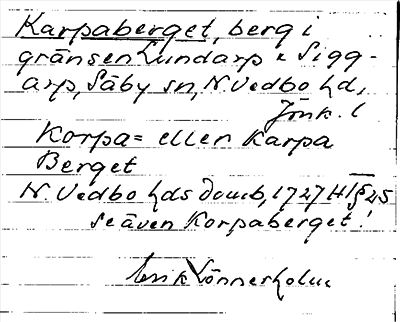 Karpaberget, berg i
gränsen Lundarp x Sigg-
arp, Säby sn, N. Vedbo hd,
Jönk. l
Korpa= eller Karpa
Berget
N. Vedbo hds domb, 1727 H T § 25
se även Korpaberget!
Erik Lönnerholm